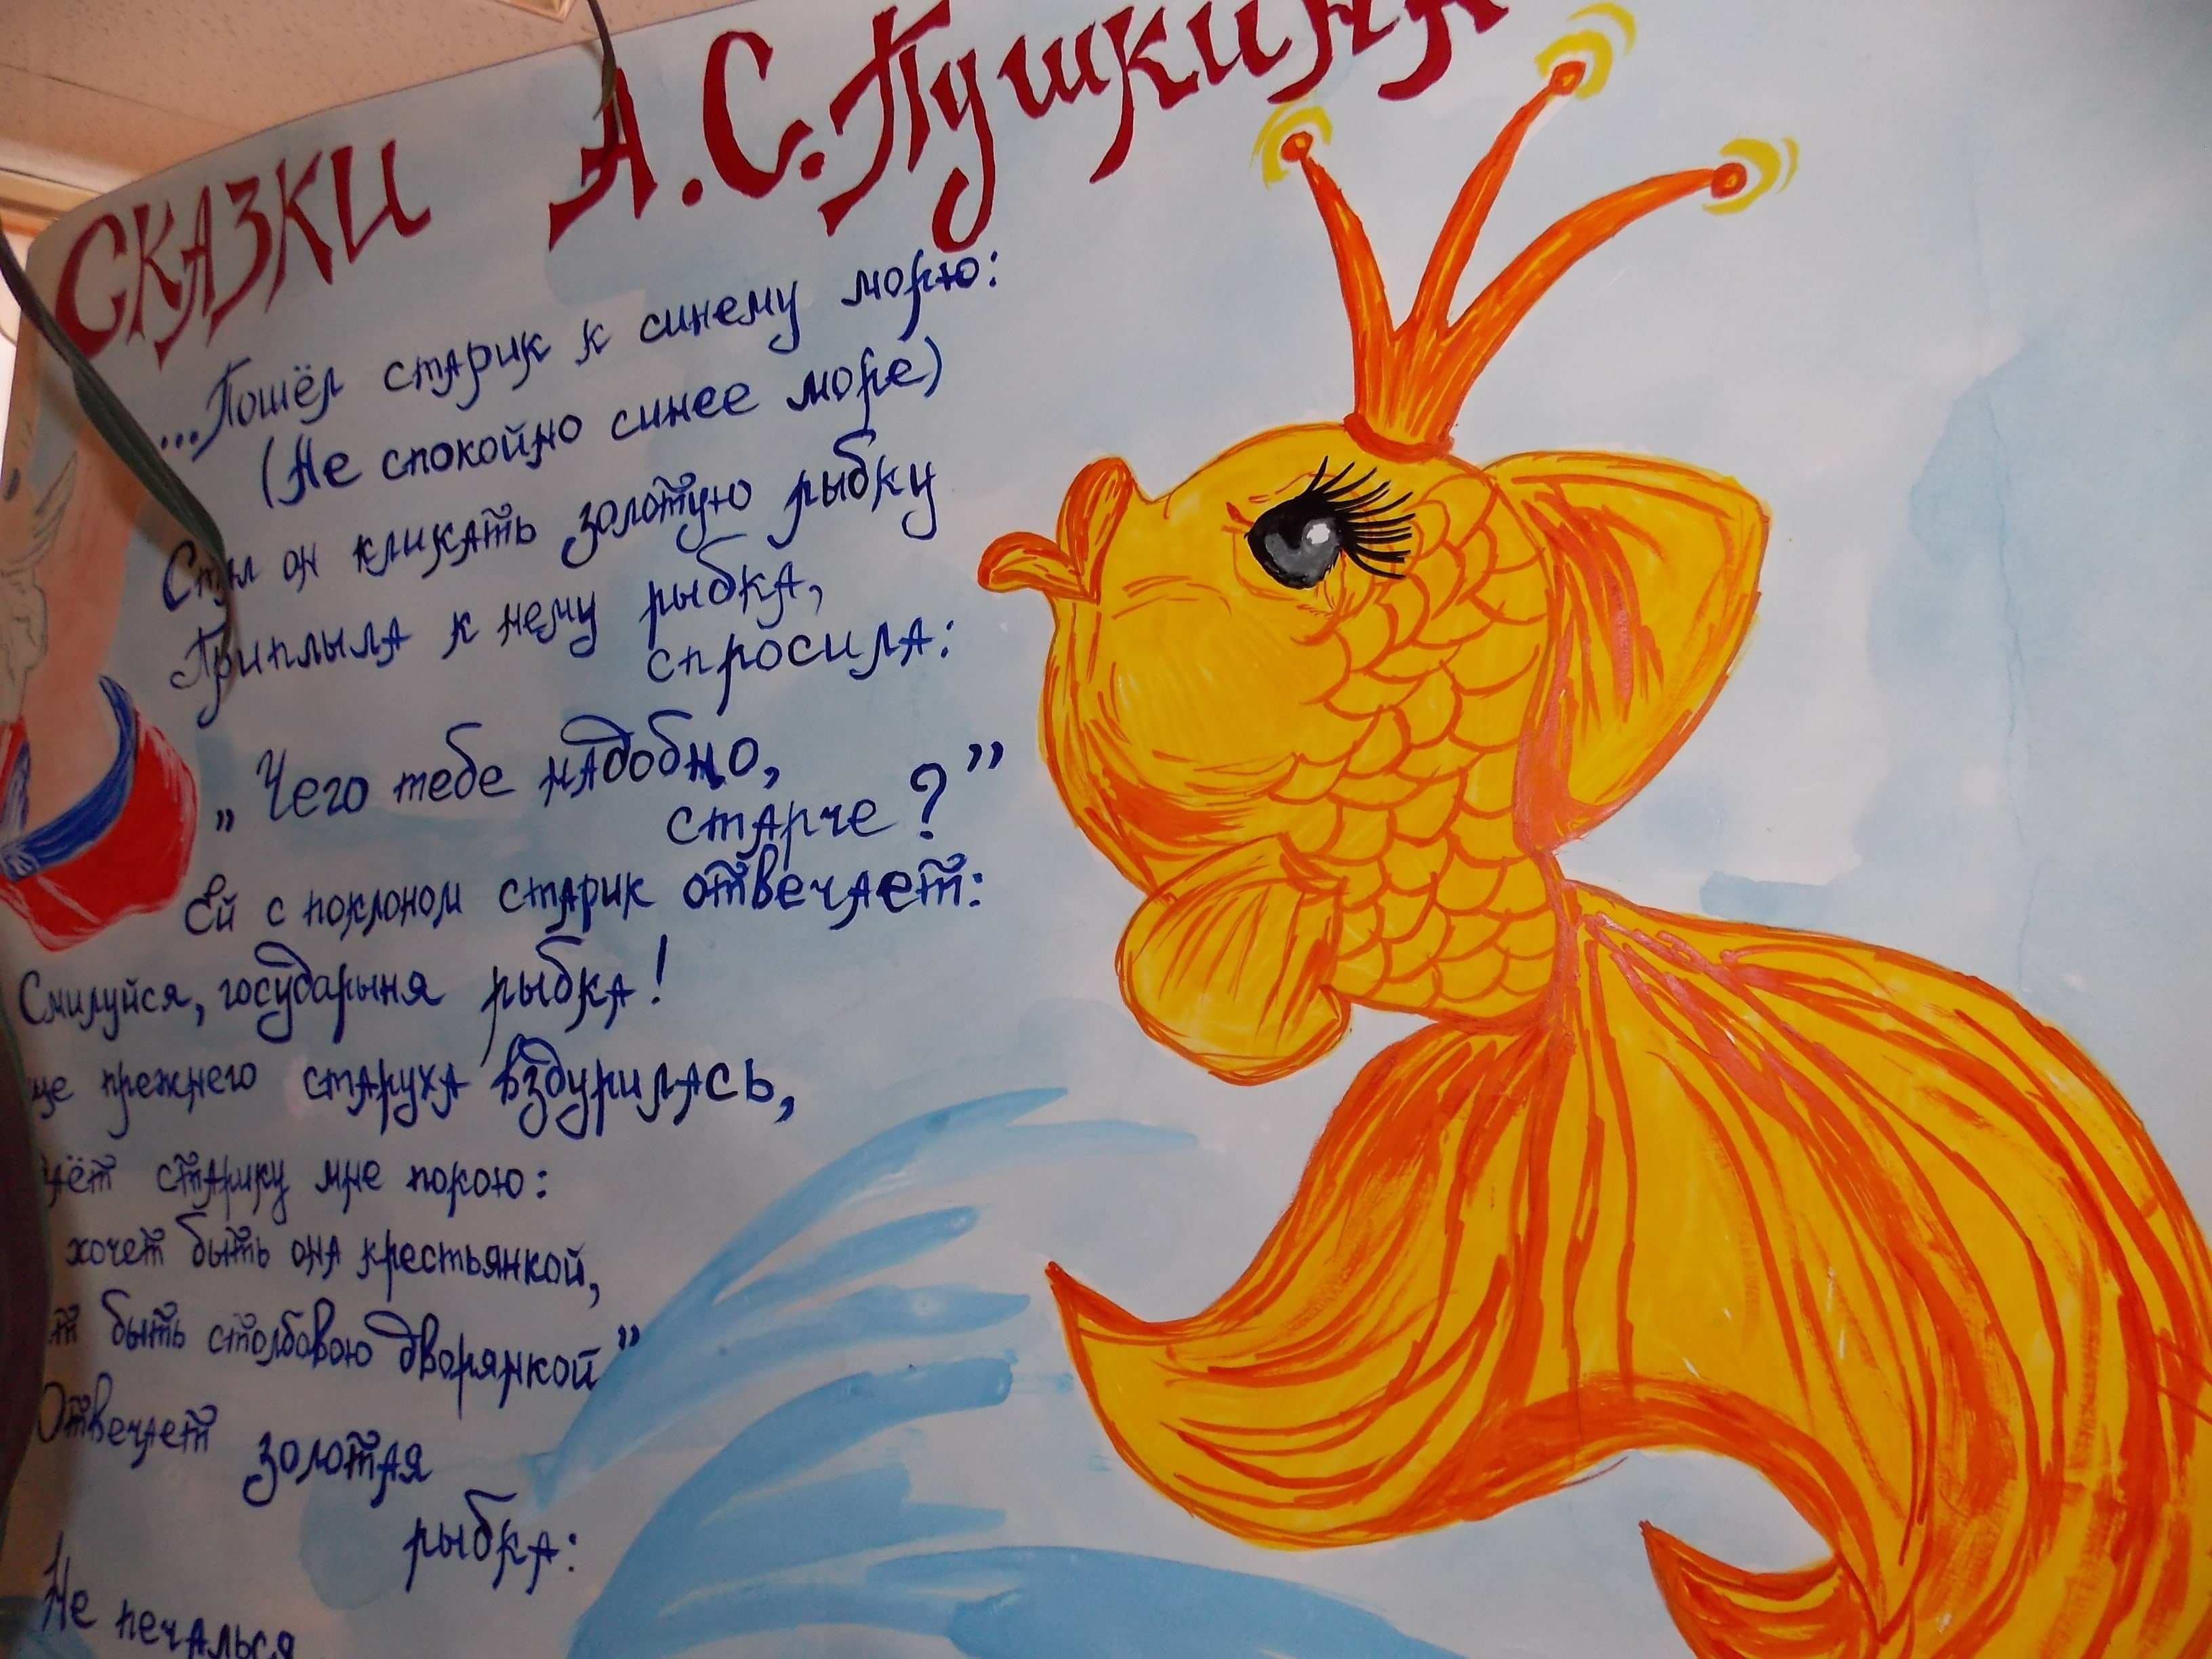 СКАЗКИ А.С.Пушкина
...Пошёл старик к синему морю:
(Не спокойно синее море)
Стал он кликать золотую рыбку
Приплыла к нему рыбка,
спросила:
„Чего тебе надобно,
старче?”
Ей с поклоном старик отвечает:
Смилуйся, государыня рыбка!
ще прежнего старуха вздурилась,
старику мне покою:
хочет быть она крестьянкой,
быть столбовою дворянкой”
Отвечает золотая
рыбка:
Не печалься